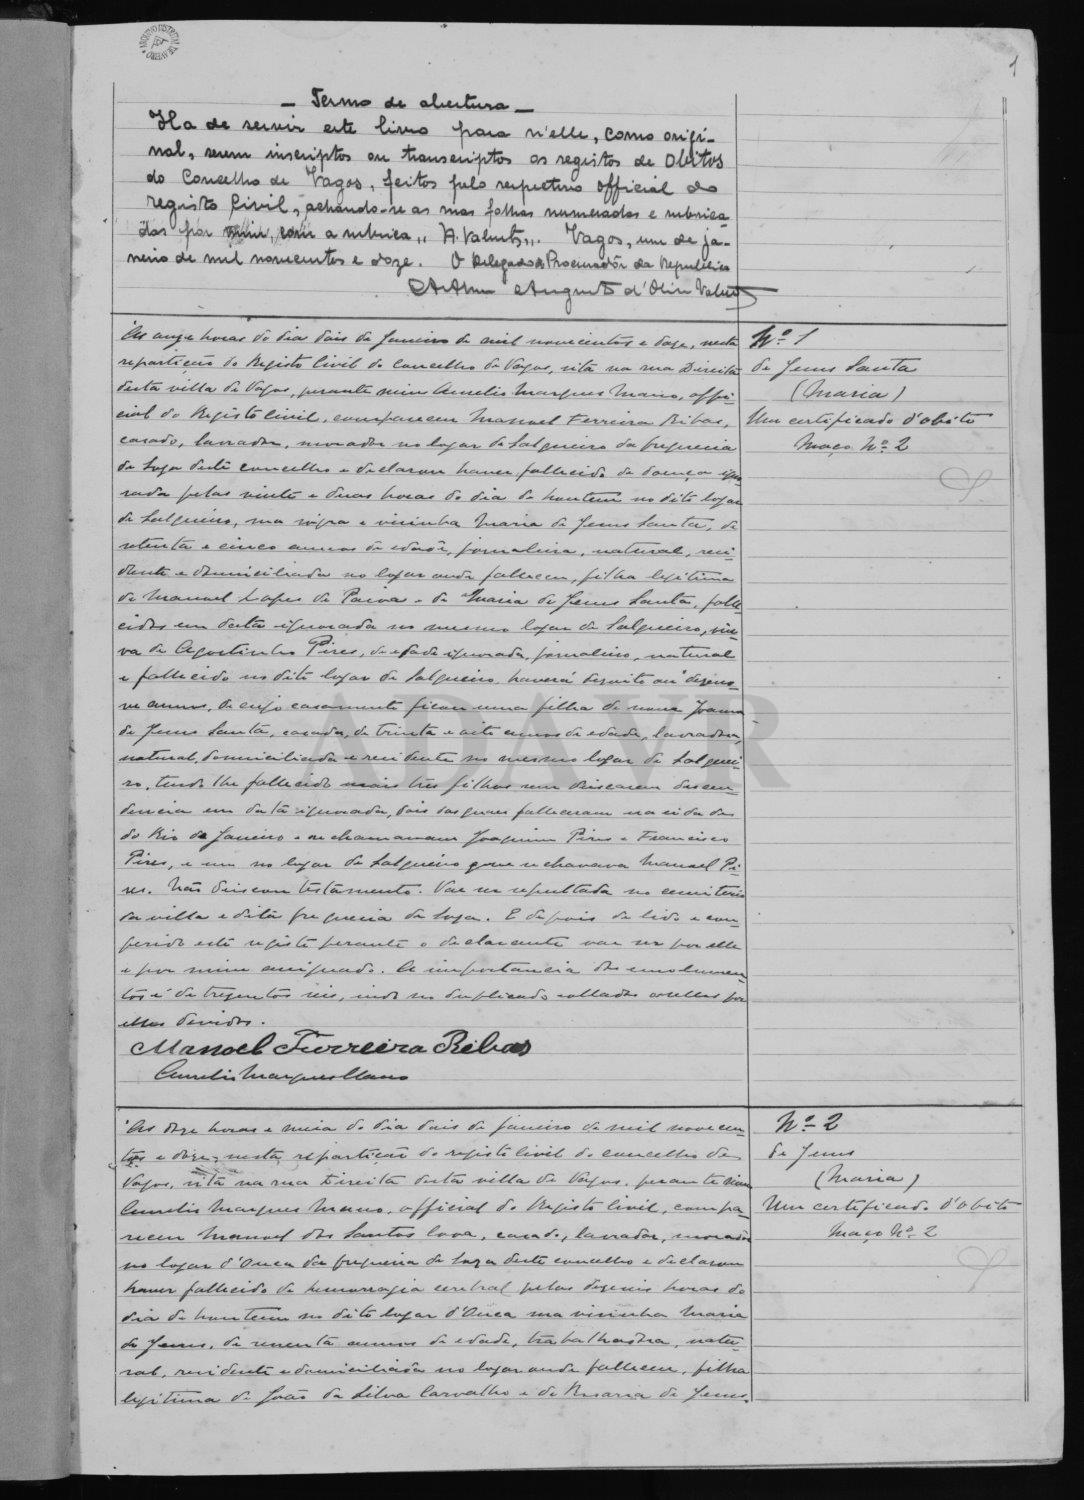 1
— Termo de abertura —
Ha de servir este livro para n'elle, como origi-
nal, serem inscriptos ou transcriptos os registos de Obitos
do Concelho de Vagos, feitos pelo respectivo official do
registo Civil, achando-se as suas folhas numeradas e rubrica
das por mim, com a rubrica ,, A. Valente ,,. Vagos, um de ja-
neiro de mil novecentos e doze. O Delegado do Procurador da Republica
Arthur Augusto d'Oliv Valente
Nº 1
de Jesus Santa
(Maria)
Um certificado d'obito
Maço Nº 2
Ás onze horas do dia dois de Janeiro de mil novecentos e doze, nesta
repartição do Registo Civil do Concelho de Vagos, sita na rua Direita
desta villa de Vagos, perante mim Aurelio Marques Mano, offi-
cial do Registo Civil, compareceu Manuel Ferreira Ribas,
casado, lavrador, morador no logar de Salgueiro da freguesia
de Soza deste concelho e declarou haver fallecido de doença igno-
rada pelas vinte e duas horas do dia de hontem no dito logar
de Salgueiro, sua sogra e visinha Maria de Jesus Santa, de
setenta e cinco annos de edade, jornaleira, natural, resi-
dente e domiciliada no logar onde falleceu, filha legitima
de Manuel Lopes de Paiva e de Maria de Jesus Santa, falle-
cidos em data ignorada no mesmo logar de Salgueiro, viu-
va de Agostinho Pires, de edade ignorada, jornaleiro, natural
e fallecido no dito logar de Salgueiro, haverá dezoito ou dezeno-
ve annos, de cujo casamento ficou uma filha de nome Joanna
de Jesus Santa, casada, de trinta e oito annos de edade, lavradora,
natural, domiciliada e residente no mesmo logar de Salguei-
ro, tendo lhe fallecido mais três filhos sem deixarem descen-
dencia em data ignorada, dois dos quaes falleceram na cidade
do Rio de Janeiro e se chamavam Joaquim Pires e Francisco
Pires, e um no logar de Salgueiro que se chamava Manuel Pi-
res. Não deixou testamento. Vae ser sepultada no cemiterio
da villa e dita freguesia de Soza. E depois de lido e con-
ferido este registo perante o declarante vae ser por elle
e por mim assignado. A importancia dos emolumen-
tos é de trezentos reis, indo no duplicado collados os sellos por
elles devidos.
Manoel Ferreira Ribas
Aurelio Marques Mano
Nº 2
de Jesus
(Maria)
Um certificado d'obito
Maço Nº 2
Ás doze horas e meia do dia dois de janeiro de mil novecen-
tos e doze, nesta repartição do registo civil do concelho de
Vagos, sita na rua Direita desta villa de Vagos, perante mim
Aurelio Marques Mano, official do Registo Civil, compa-
receu Manuel dos Santos Cova, casado, lavrador, morador
no logar d'Ouca da freguesia de Soza deste concelho e declarou
haver fallecido de hemorragia cerebral pelas dezeseis horas do
dia de hontem no dito logar d'Ouca sua visinha Maria
de Jesus, de sessenta annos de edade, trabalhadora, natu-
ral, residente e domiciliada no logar onde falleceu, filha
legitima de João da Silva Carvalho e de Rosaria de Jesus,
ADAVR